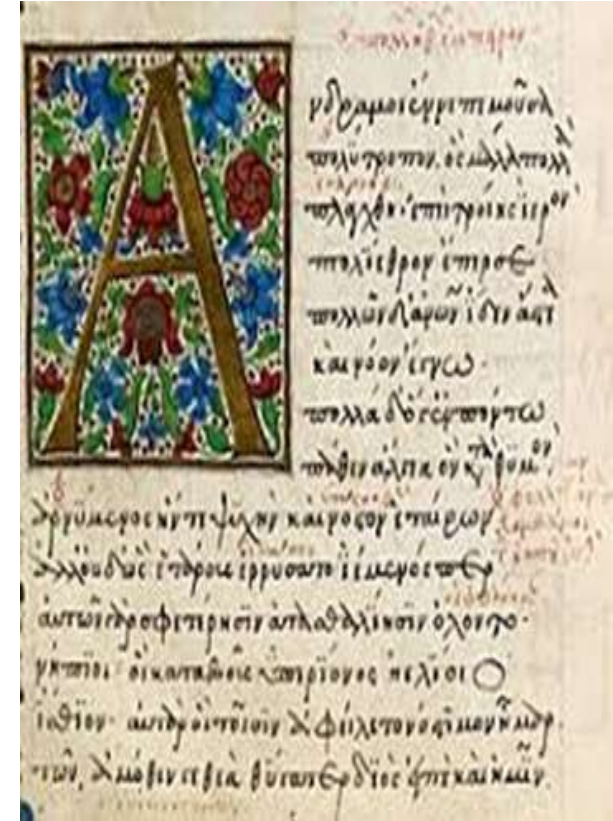 Α
νδρα μοι ἔννεπε μοῦσα
πολύτροπον. ὃς μάλα πολλ
πλάγχθη· ἐπεὶ τροίης ἱερὸν
πτολίεθρον ἔπερσε
πολλῶν δ' ἀνθρώπων ἴδεν ἄστ
καὶ νόον ἔγνω·
πολλὰ δ' ὅγ' ἐν πόντω
πάθεν ἄλγεα ὃν κατὰ θυμόν,
ἀρνύμενος ἥν τε ψυχὴν καὶ νόστον ἑταίρων
ἀλλ' οὐδ' ὣς ἑτάρους ἐρρύσατο ἱέμενός περ
αὐτῶν γὰρ σφετέρησιν ἀτασθαλίησιν ὄλοντο·
νήπιοι οἳ κατὰ βοῦς ὑπερίονος ἠελίοιο
ἤσθιον· αὐτὰρ ὁ τοῖσιν ἀφείλετο νόστιμον ἦμαρ.
τῶν, ἁμόθεν γε θεὰ θύγατερ διὸς εἰπὲ καὶ ἡμῖν.